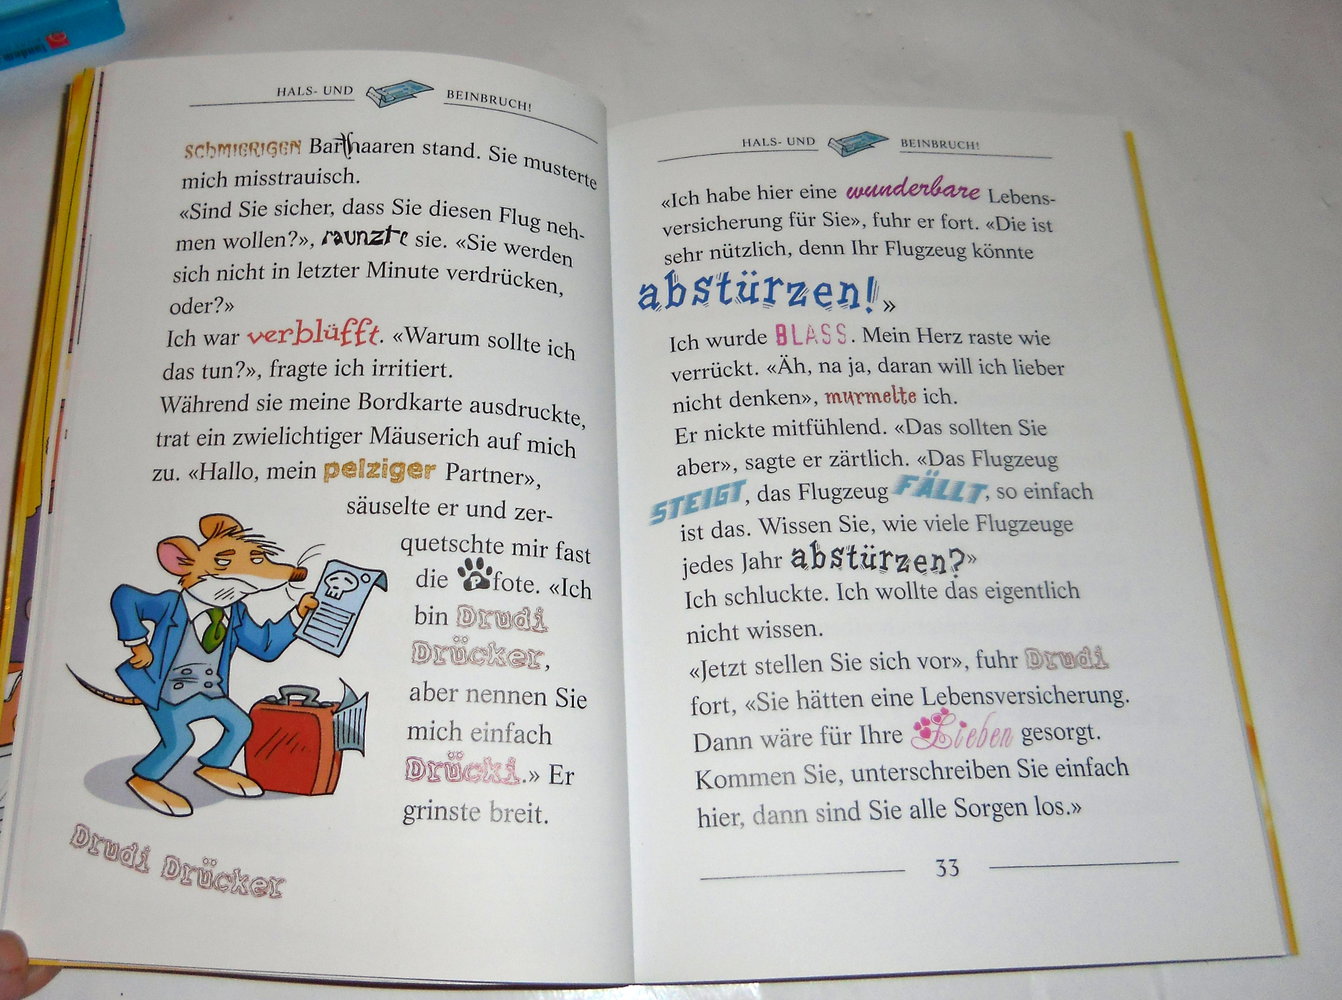 HALS- UND BEINBRUCH!
schmierigen Barthaaren stand. Sie musterte
mich misstrauisch.
«Sind Sie sicher, dass Sie diesen Flug neh-
men wollen?», raunzte sie. «Sie werden
sich nicht in letzter Minute verdrücken,
oder?»
Ich war verblüfft. «Warum sollte ich
das tun?», fragte ich irritiert.
Während sie meine Bordkarte ausdruckte,
trat ein zwielichtiger Mäuserich auf mich
zu. «Hallo, mein pelziger Partner»,
säuselte er und zer-
quetschte mir fast
die Pfote. «Ich
bin Drudi
Drücker,
aber nennen Sie
mich einfach
Drücki.» Er
grinste breit.
Drudi Drücker
HALS- UND BEINBRUCH!
«Ich habe hier eine wunderbare Lebens-
versicherung für Sie», fuhr er fort. «Die ist
sehr nützlich, denn Ihr Flugzeug könnte
abstürzen!»
Ich wurde BLASS. Mein Herz raste wie
verrückt. «Äh, na ja, daran will ich lieber
nicht denken», murmelte ich.
Er nickte mitfühlend. «Das sollten Sie
aber», sagte er zärtlich. «Das Flugzeug
STEIGT, das Flugzeug FÄLLT, so einfach
ist das. Wissen Sie, wie viele Flugzeuge
jedes Jahr abstürzen?»
Ich schluckte. Ich wollte das eigentlich
nicht wissen.
«Jetzt stellen Sie sich vor», fuhr Drudi
fort, «Sie hätten eine Lebensversicherung.
Dann wäre für Ihre Lieben gesorgt.
Kommen Sie, unterschreiben Sie einfach
hier, dann sind Sie alle Sorgen los.»
33